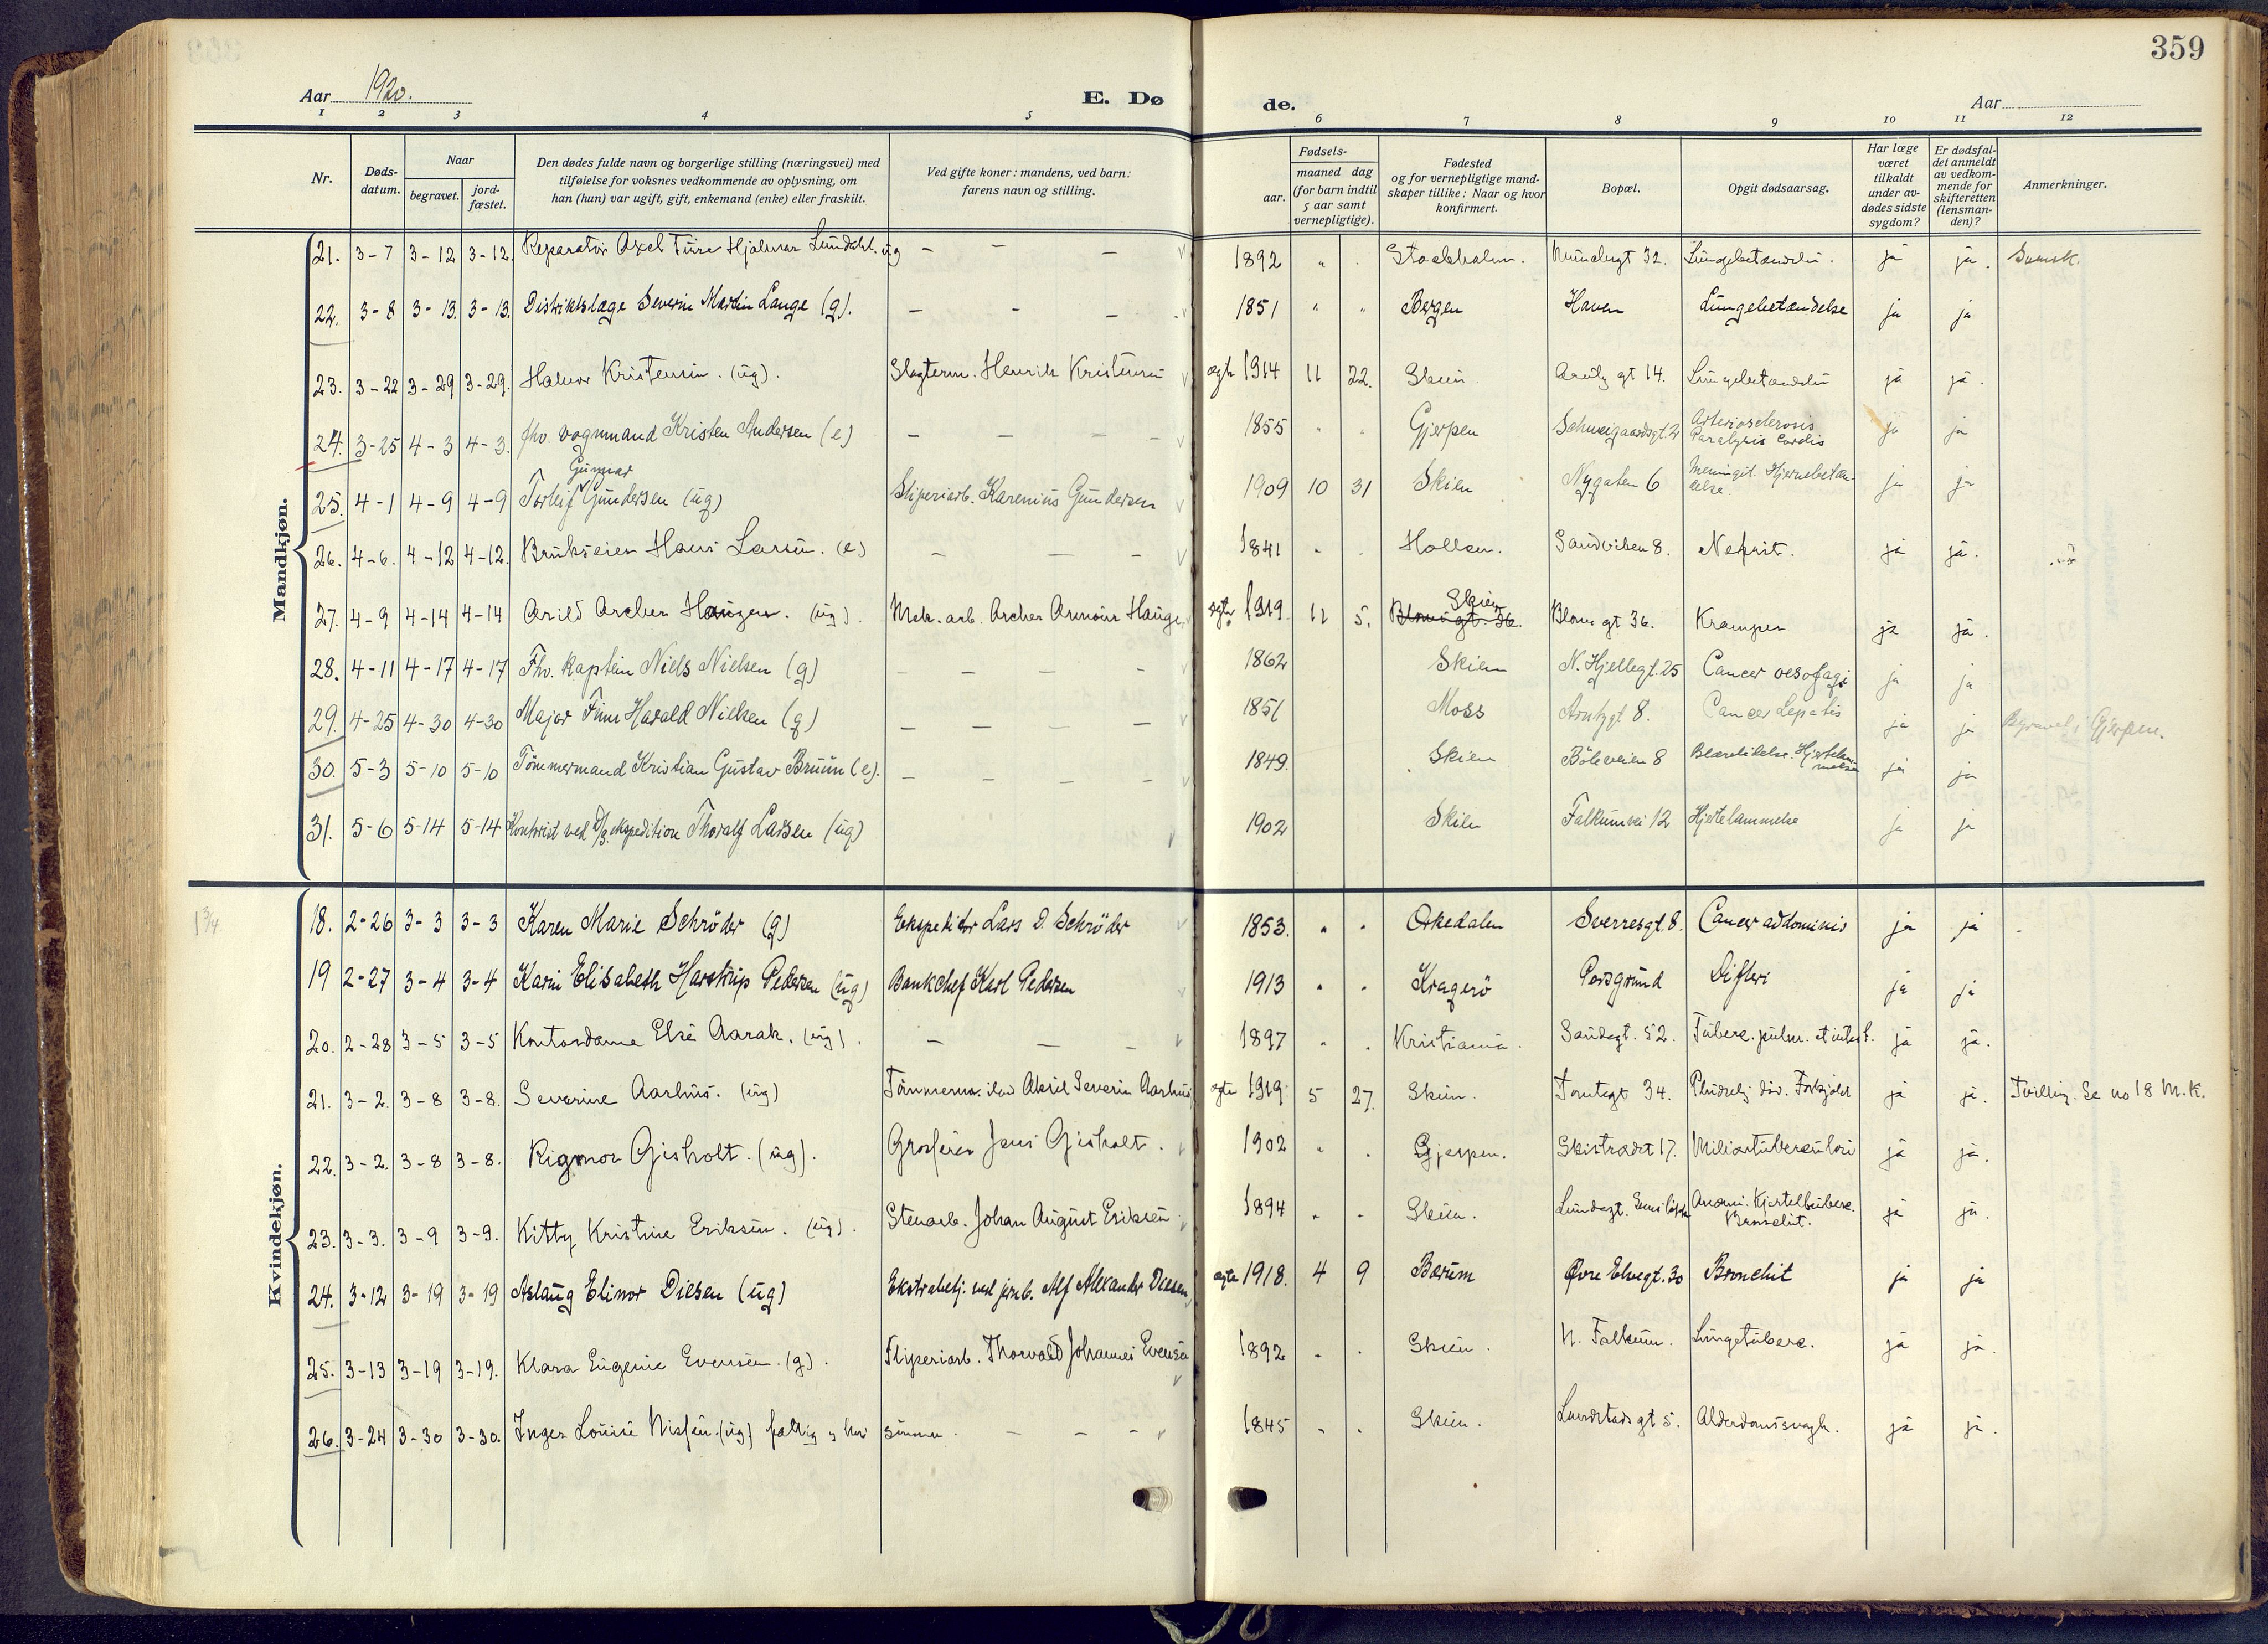 359
Aar 1920.
E. Dø
de.
Aar
1 2 3 4 5 6 7 8 9 10 11 12
Nr.
Døds-
datum.
Naar
begravet.
jord-
fæstet.
Den dødes fulde navn og borgerlige stilling (næringsvei) med
tilføielse for voksnes vedkommende av oplysning, om
han (hun) var ugift, gift, enkemand (enke) eller fraskilt.
Ved gifte koner: mandens, ved barn:
farens navn og stilling.
Fødsels-
aar.
maaned dag
(for barn indtil
5 aar samt
vernepligtige).
Fødested
og for vernepligtige mand-
skaper tillike: Naar og hvor
konfirmert.
Bopæl.
Opgit dødsaarsag.
Har læge
været
tilkaldt
under av-
dødes sidste
sygdom?
Er dødsfal-
det anmeldt
av vedkom-
mende for
skifteretten
(lensman-
den)?
Anmerkninger.
Mandkjøn.
21. 3-7 3-12 3-12 Reparatör Axel Ture Hjalmar Lundahl. ug – – – 1892 " . Stockholm. Munchsgt 32. Lungebetændelse. ja ja. Svensk.
22. 3-8 3-13. 3-13. Distriktslæge Severin Martin Lange (g). – – – 1851 " " Bergen Haven Lungebetændelse ja ja
23. 3-22 3-29 3-29. Halvor Kristensen. (ug). Slagterm. Henrik Kristensen ægte 1914 11 22. Skien Arntz gt 14. Lungebetændelse ja ja.
24. 3-25 4-3 4-3. fhv. vognmand Kristen Andersen (e) – – – – 1855 " " Gjerpen Schweigaardsgt. 2 Arteriosclerosis
Paralysis cordis ja ja
Gunnar
25. 4-1 4-9 4-9 Torleif Gundersen (ug) Sliperiarb. Karenius Gundersen 1909 10 31 Skien Nygaten 6 Meningit. Hjernebetæn-
delse. ja ja
26. 4-6. 4-12 4-12. Brukseier Hans Larsen. (e) – – – 1841 " . Hollen. Sandviken 8. Nefrit. ja ja.
27. 4-9 4-14 4-14 Arild Archer Haugen. (ug). Mek. arb. Archer Armour Haugen ægte 1919. 11 5. Skien
Blomsgt. 36. Bloms gt 36. Kramper ja ja.
28. 4-11 4-17 4-17 Fhv. kaptein Niels Nielsen (g) – – – – 1862 Skien N. Hjellegt. 25 Cancer oesofagi ja ja
29. 4-25 4-30 4-30 Major Finn Harald Nielsen (g) – – – – 1851 Moss Arntzgt 8. Cancer hepatis ja ja Begravet i Gjerpen.
30. 5-3 5-10 5-10 Tömmermand Kristian Gustav Bruun (e). – – – – 1849. Skien Böleveien 8 Blærelidelse. Hjertelam-
melse ja ja
31. 5-6 5-14 5-14 Kontorist ved D/S. ekspedition Thoralf Larsen (ug) 1902 Skien Falkumvei 12 Hjertelammelse ja ja
Kvindekjøn.
18. 2-26 3-3 3-3 Karen Marie Schröder (g) Ekspeditör Lars D. Schröder 1853. " " Orkedalen Sverresgt. 8. Cancer addominis ja ja
19 2-27 3-4 3-4 Karin Elisabeth Harstrup Pedersen (ug) Bankchef Karl Pedersen 1913 " " Kragerö Porsgrund Difteri ja ja
20. 2-28 3-5 3-5 Kontordame Else Aarak. (ug). – – – 1897 " . Kristiania. Sandegt. 52. Tuberc. pulm. et intest. ja ja.
21. 3-2. 3-8 3-8. Severine Aarhus. (ug) Tömmerm. Aksel Severin Aarhus ægte 1919. 5 27. Skien. Torvtegt 34. ja ja. Tvilling. Se no 18 M.K.
22. 3-2. 3-8 3-8. Rigmor Gisholt. (ug). Grosserer Jens Gisholt. 1902 " . Gjerpen. Skistrædet 17. Miliartuberculose ja ja.
23. 3-3. 3-9 3-9. Kitty Kristine Eriksen. (ug). Stenarb. Johan August Eriksen 1894 " . Skien. Lundegt. Anæmi. Kjerteltuberc.
Bronchit. ja ja.
24. 3-12 3-19 3-19 Aslaug Elinor Diesen (ug) Ekstrabetj. ved jernb. Alf Alexander Diesen ægte 1918. 4 9 Bærum Øvre Elvegt. 30 Bronchit ja ja
25. 3-13 3-19 3-19. Klara Eugenie Evensen. (g). Sliperiarb. Thorvald Johannes Evensen 1892 " . Skien. N. Falkum. Lungetuberc. ja ja.
26. 3-24 3-30 3-30. Inger Louise Nissen. (ug) – – – 1845 " . Skien. Lundstads gt 5. Alderdomssvagh. ja ja.